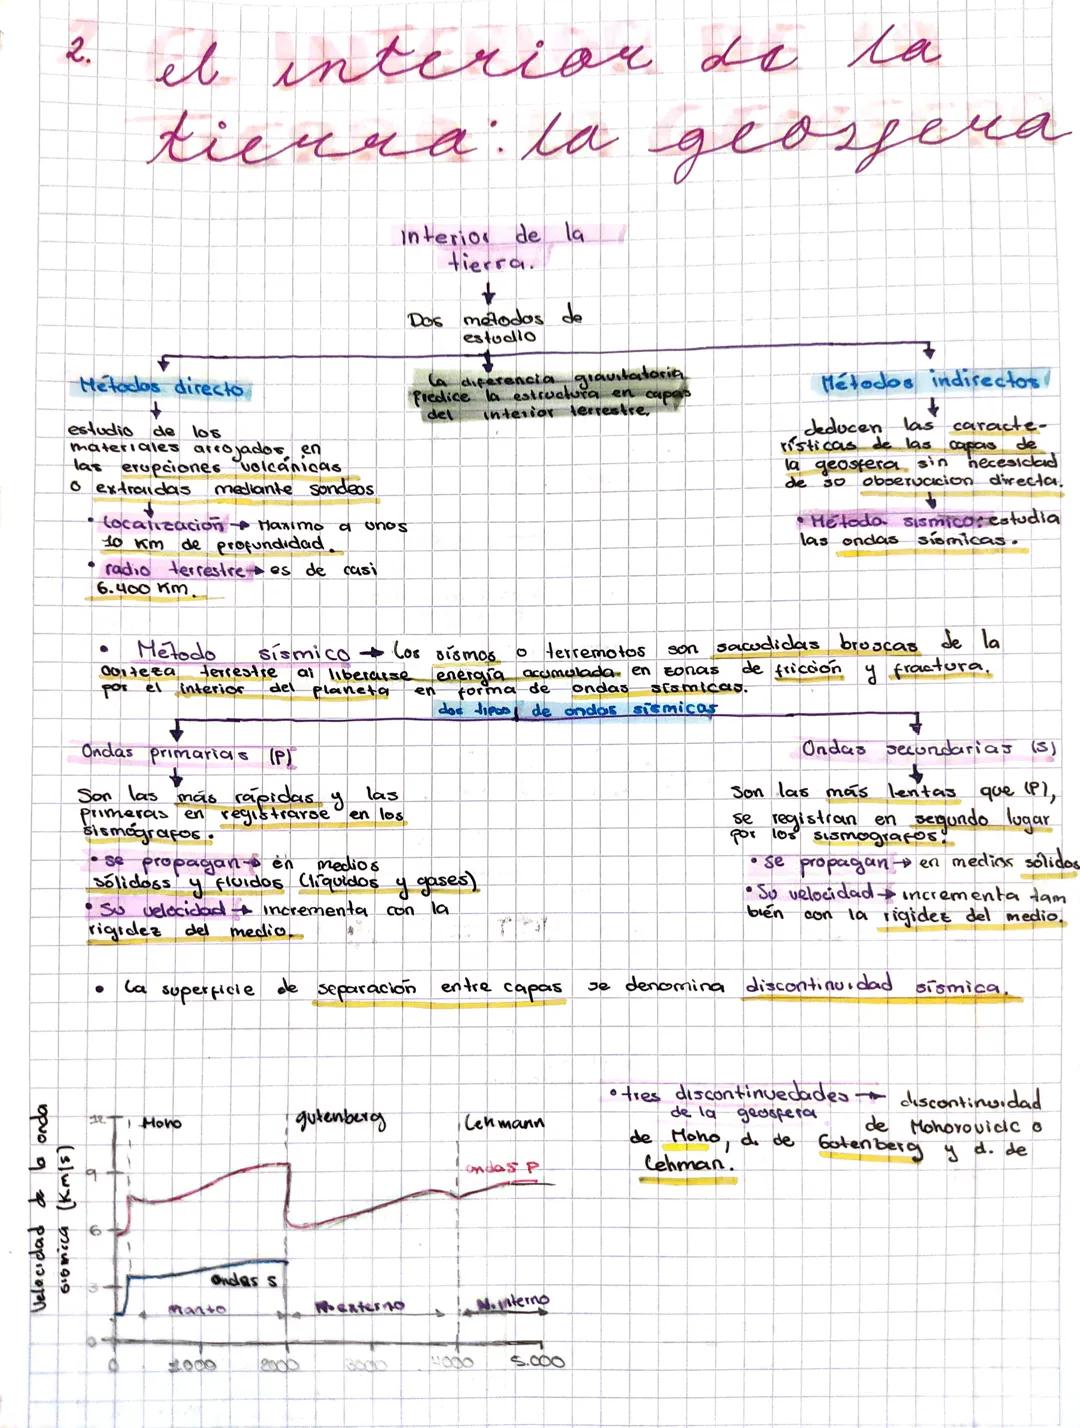 2. el interior de la
tierra: la geosfera
Interior de la
tierra.
Dos métodos de
estudio
Métodos directo
estudio de los
materiales arrojados en
las erupciones volcánicas
o extraidas mediante sondeos
• Localización → Maximo a unos
10 Km de profundidad.
• radio terrestre → es de casi
6.400 Km.
La diferencia gravitatoria
Predice la estructura en capas
del interior terrestre,
Métodos indirectos
deducen las caracte-
rísticas de las capas de
la geosfera sin necesidad
de so observacion directa.
• Método sismico: estudia
las ondas sísmicas.
• Método sísmico → Los sismos o terremotos son sacudidas bruscas de la
corteza terrestre al liberarse energía acumulada en zonas de fricción y fractura.
por el interior del planeta en forma de ondas sísmicas.
dos tipos de ondas sísmicas
Ondas primarias (P)
Son las más rápidas y las
primeras en registrarse en los
sismógrafos.
• se propagan → en medios
sólidoss y fluidos (líquidos y gases)
• Su velocidad → incrementa con la
rigidez del medio.
Ondas secundarias (S)
Son las más lentas que (P),
se registran en segundo lugar
por los sismografos.
• se propagan → en medios sólidos
• Su velocidad → incrementa tam
bién con la rigidez del medio.
• La superficie de separación entre capas se denomina discontinuidad sísmica.
• tres discontinuedades → discontinuidad
de la geosfera de Mohorovicic o
de Moho, d. de Gutenberg y d. de
Lehman.
Velocidad de la onda
sísmica (Km/s)
12
9
6
3
0
Moho
gutenberg
Lehmann
ondas P
ondas s
manto
N. externo
N. interno
0 1000 2000 3000 4000 5.000